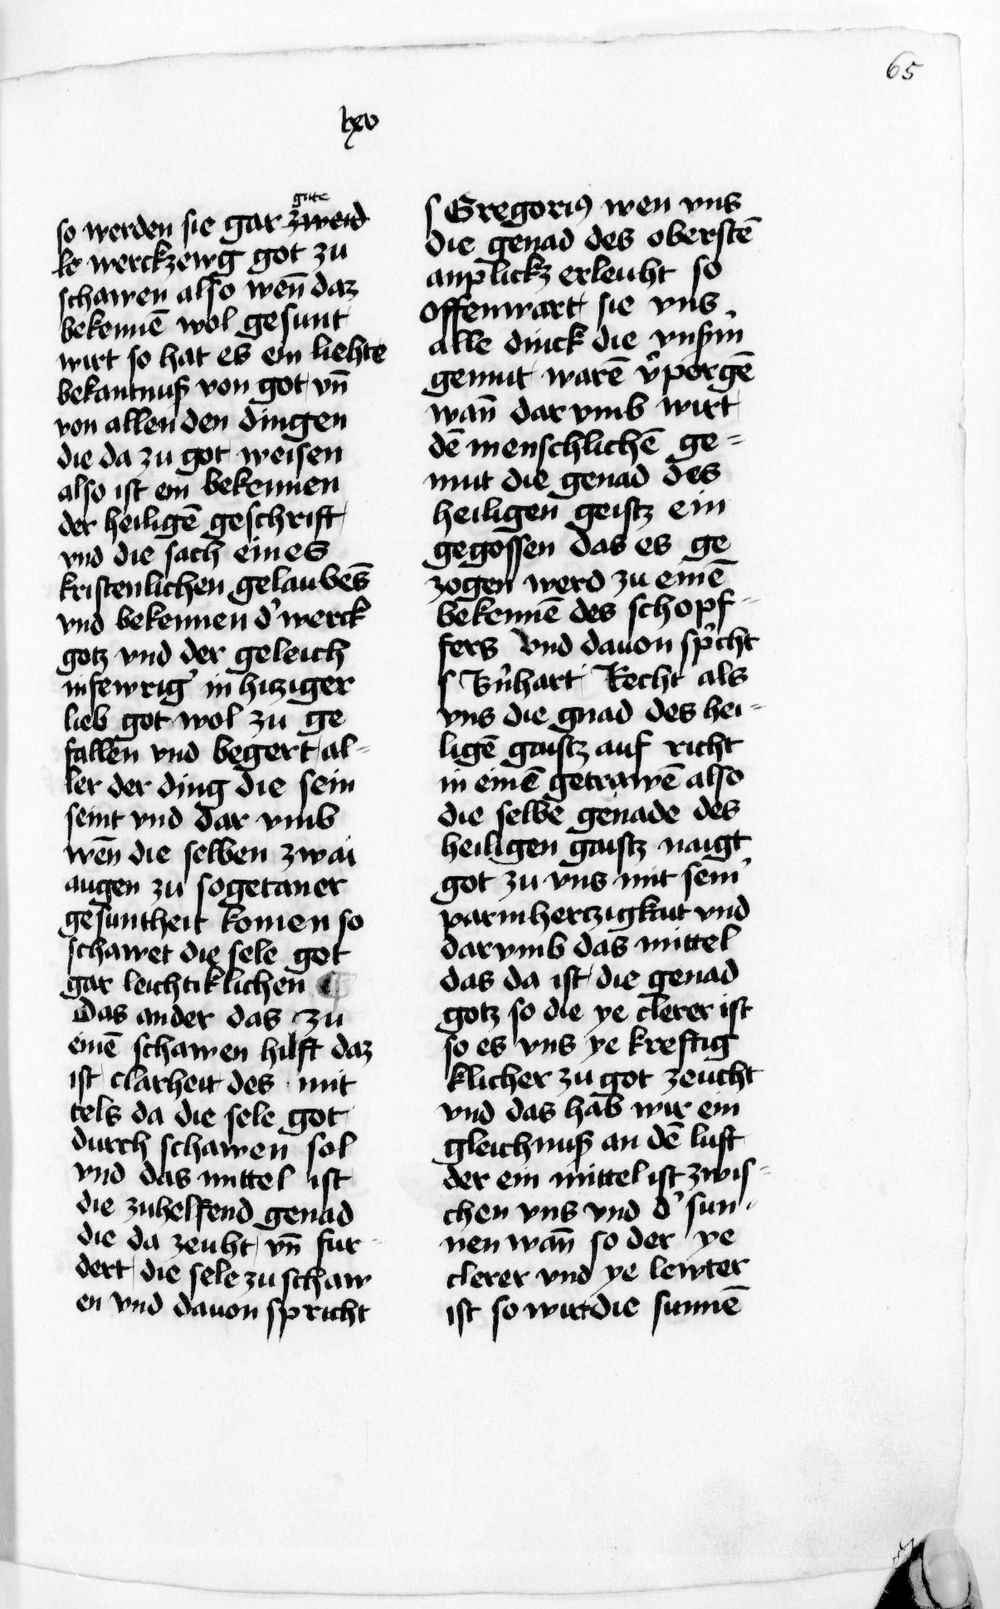 65
lxv
gute
so werden sie gar zweid
le werckzewg got zu
schawen also wen̄ daz
bekennē wol gesunt
wirt so hat es ein liehte
bekantnuß von got vn̄
von allen den dingen
die da zu got weisen
also ist ein bekennen
der heiligē geschrift
vnd die sach eines
kristenlichen gelaubes̄
vnd bekennen d' werck
gotz vnd der geleich
infewrig' in hitziger
lieb got wol zu ge
fallen vnd begert al-
ler der ding die sein
seint vnd dar vmb
wen̄ die selben zwai
augen zu sogetaner
gesuntheit komen so
schawet die sele got
gar leichtiklichen ¶
Das ander das zu
einē schawen hilft daz
ist clarheit des mit
tels da die sele got
durch schawen sol
vnd das mittel ist
die zuhelfend genad
die da zeuht vn̄ fur-
dert die sele zu schaw
en vnd dauon spricht
s Gregori9 wen vns
die genad des oberstē
anplickz erleuht so
offenwart sie vns
alle dinck die vnsm̄
gemut warē v'porgē
wan̄ dar vmb wirt
dē menschlichē ge=
mut die genad des
heiligen geistz ein
gegossen das es ge
zogen werd zu einē
bekennē des schopf-
fers Vnd dauon sp'cht
s B'nhart Recht als
vns die gnad des hei-
ligē gaistz auf richt
in einē getrawē also
die selbe genade des
heiligen gaistz naigt
got zu vns mit sein'
parmhertzigkait vnd
darvmb das mittel
das da ist die genad
gotz so die ye clerer ist
so es vns ye kreftig
klicher zu got zeucht
vnd das hab wir ein
gleichnuß an dē luft
der ein mittel ist zwis-
chen vns vnd d' sun-
nen wan̄ so der ye
clerer vnd ye lewter
ist so wirt die sunnē